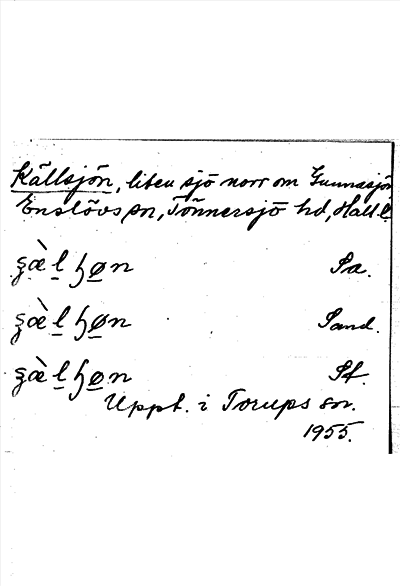 Källsjön, liten sjö norr om Gunnasjön
Enslövs sn, Tönnersjö hd, Hall. l.
ʂæ̀l ɧøn Pa.
ʂæ̀l ɧøn Sand.
ʂæ̀l ɧøn St.
Uppt. i Torups sn.
1955.